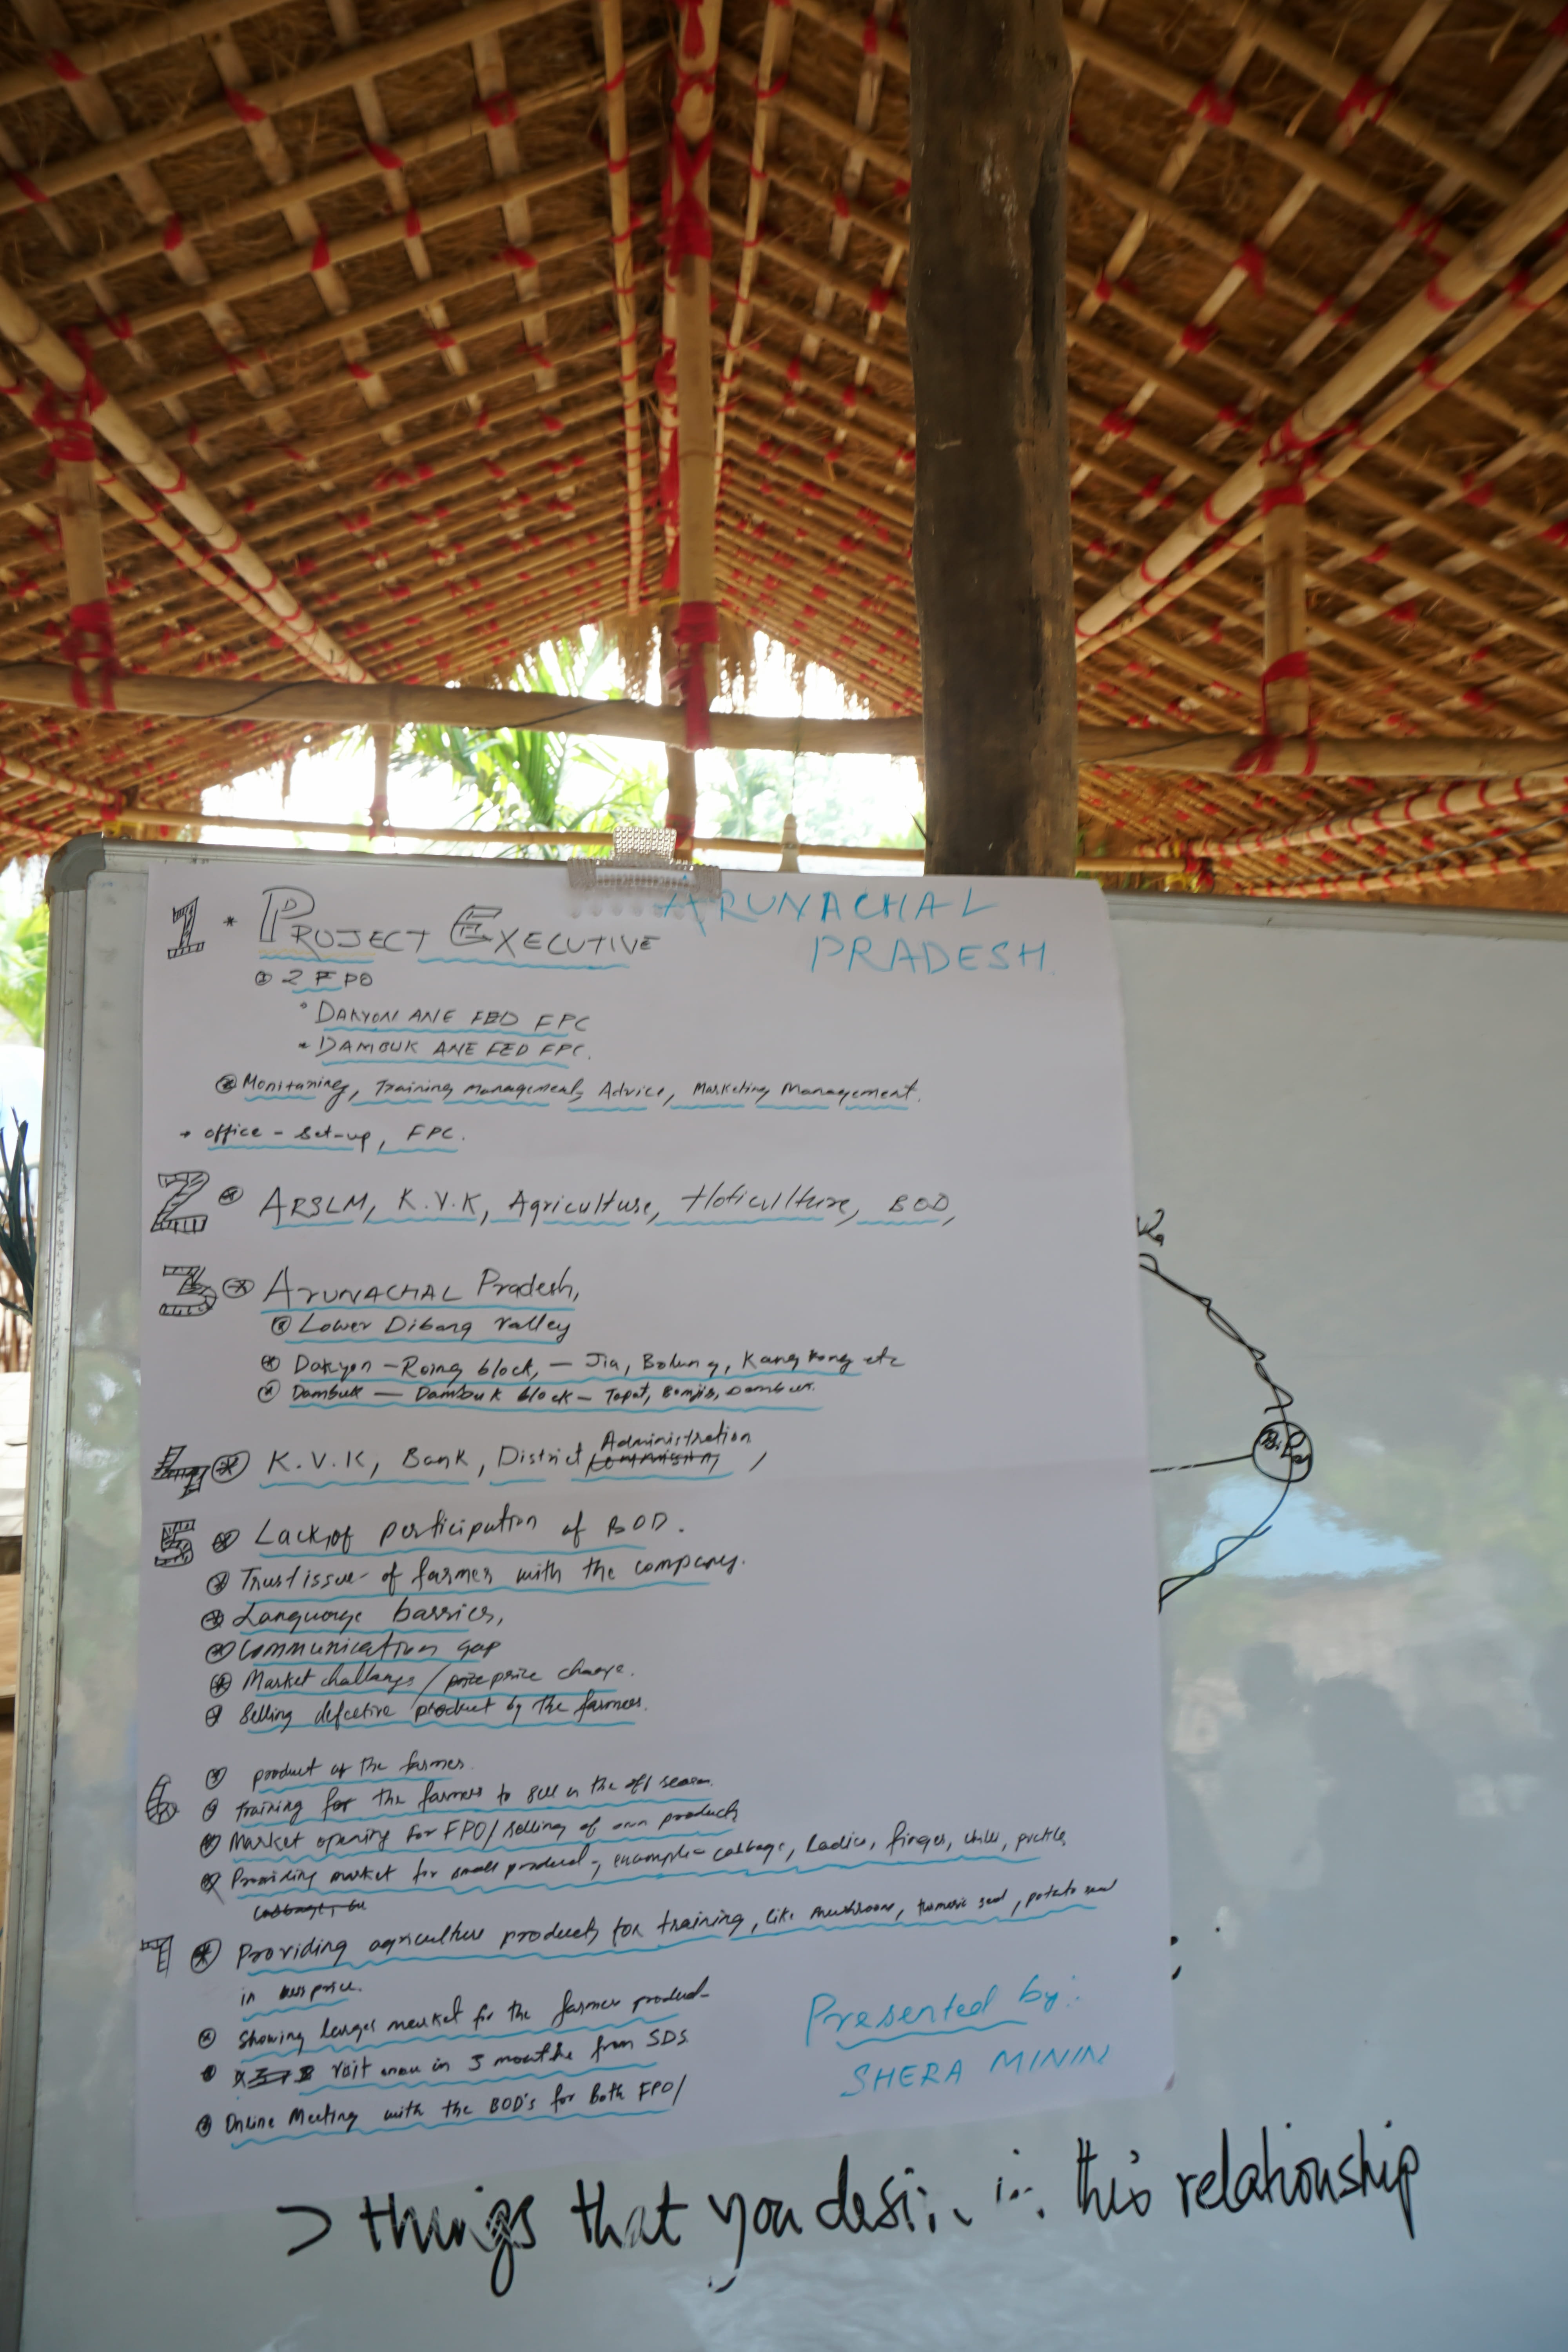 ARUNACHAL
PRADESH
1. * PROJECT EXECUTIVE
2 FPO
DAKYON ANE FED FPC
* DAMBUK ANE FED FPC.
Monitoring, Training management, Advice, Marketing Management.
→ office - set-up, FPC.
2 ARSLM, K.V.K, Agriculture, Hoticulture, BOD,
3 ARUNACHAL Pradesh,
Lower Dibang valley
Dakyon - Roing block, - Jia, Bolung, Kangkong etc
Dambuk - Dambuk block - Tapat, Bomjir, Dambuk.
4 K.V.K, Bank, District Administration,
5 Lack of participation of BOD.
Trust issue- of farmer with the company.
Language barrier,
Communication gap
Market challange / prize price change.
Selling defective product by the farmers.
6 product of the farmer.
training for the farmer to sell in the off season.
Market opening for FPO/ selling of own product
Providing market for small product -, example - cabbage, Ladies, finger, chilli, pickle,
7 Providing agriculture products for training, like mushroom, turmeric seed, potato seed
in less price.
Showing larger market for the farmer product-
visit once in 3 months from SDS
Online Meeting with the BOD's for Both FPO/
Presented by:
SHERA MININ
> things that you in this relationship